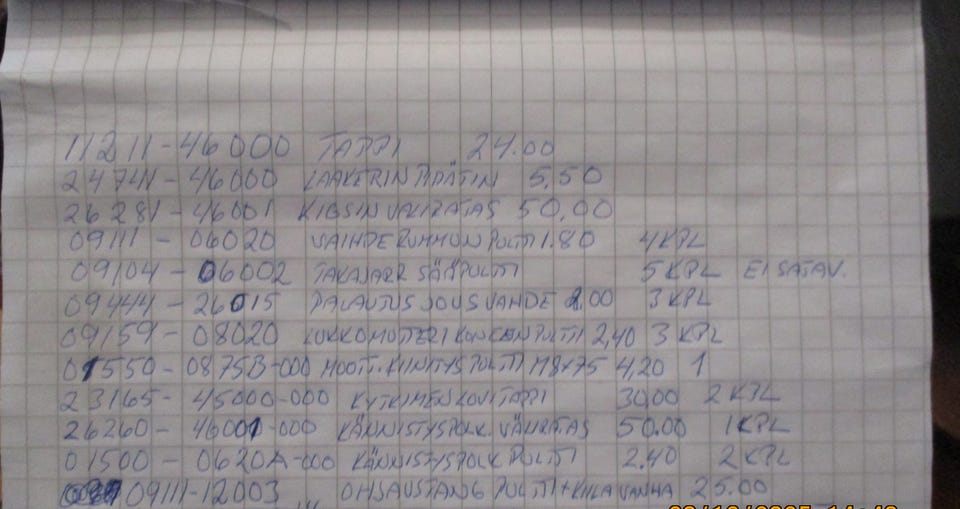 11211-46000 TAPPI 24.00
24741-46000 LAAKERIN PIDÄTIN 5,50
26281-46001 KIGSIN VÄLIRATAS 50,00
09111-06020 VAIHDERUMMUN PULTTI 1.80 4 KPL
09104-06002 TAKAJARR SÄÄPULTTI 5 KPL EI SATAV.
09444-26015 PALAUTUSJOUS VANDE 2.00 3 KPL
09159-08020 LUKKOMUTTERI PULTTI 2,40 3 KPL
01550-0875B-000 MOOTT. KIINITYSPULTTI M8x75 4,20 1
23165-45000-000 KYTKIMEN TAPPI 30.00 2 KPL
26260-46001-000 KÄNNISTYSPOLK. VÄLIRATAS 50.00 1 KPL
01500-0620A-000 KÄNNISTYSPOLK PULTTI 2.40 2 KPL
09111-12003 OHJAUSTANG PULTTI + KIILA VANHA 25.00